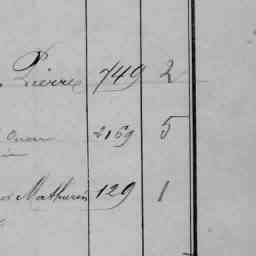 Pierre 749 2
2169 5
Mathurin 129 1